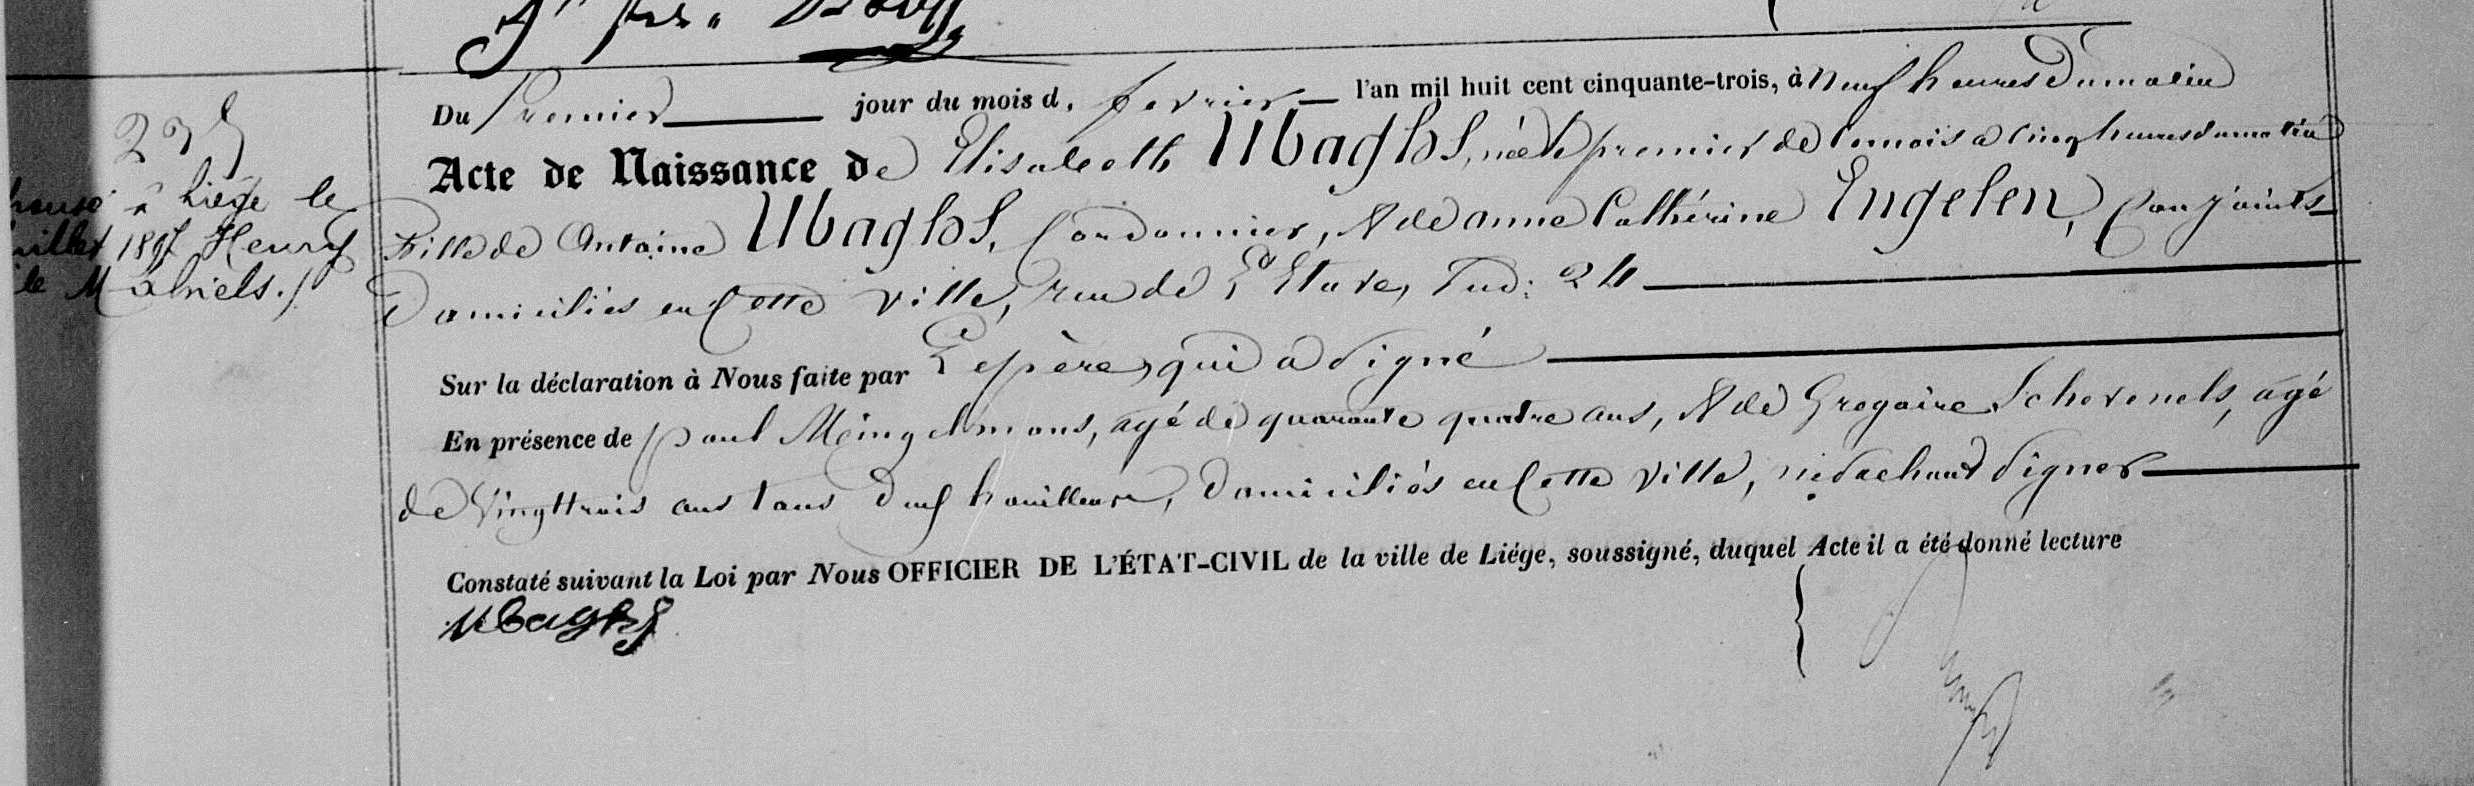 235
à Liége le
1897 Henry
Mahiels./
Du Premier jour du mois d. fevrier l'an mil huit cent cinquante-trois, à neuf heures du matin
Acte de Naissance de Elisabeth Ubaghs, née le premier de ce mois a cinq heures du matin
Fille de Antoine Ubaghs, Cordonnier, & de anne Cathérine Engelen, Conjoints
Domiciliés en Cette ville, rue de L'Etuve, Sud: 24
Sur la déclaration à Nous faite par Le père, qui a Signé
En présence de paul Meingelmans, agé de quarante quatre ans, & de Gregoire Schevenels, agé
de Vingt trois ans tous deux houilleurs, Domiciliés en Cette Ville, ne Sachant Signer
Constaté suivant la Loi par Nous OFFICIER DE L'ÉTAT-CIVIL de la ville de Liége, soussigné, duquel Acte il a été donné lecture
Ubaghs